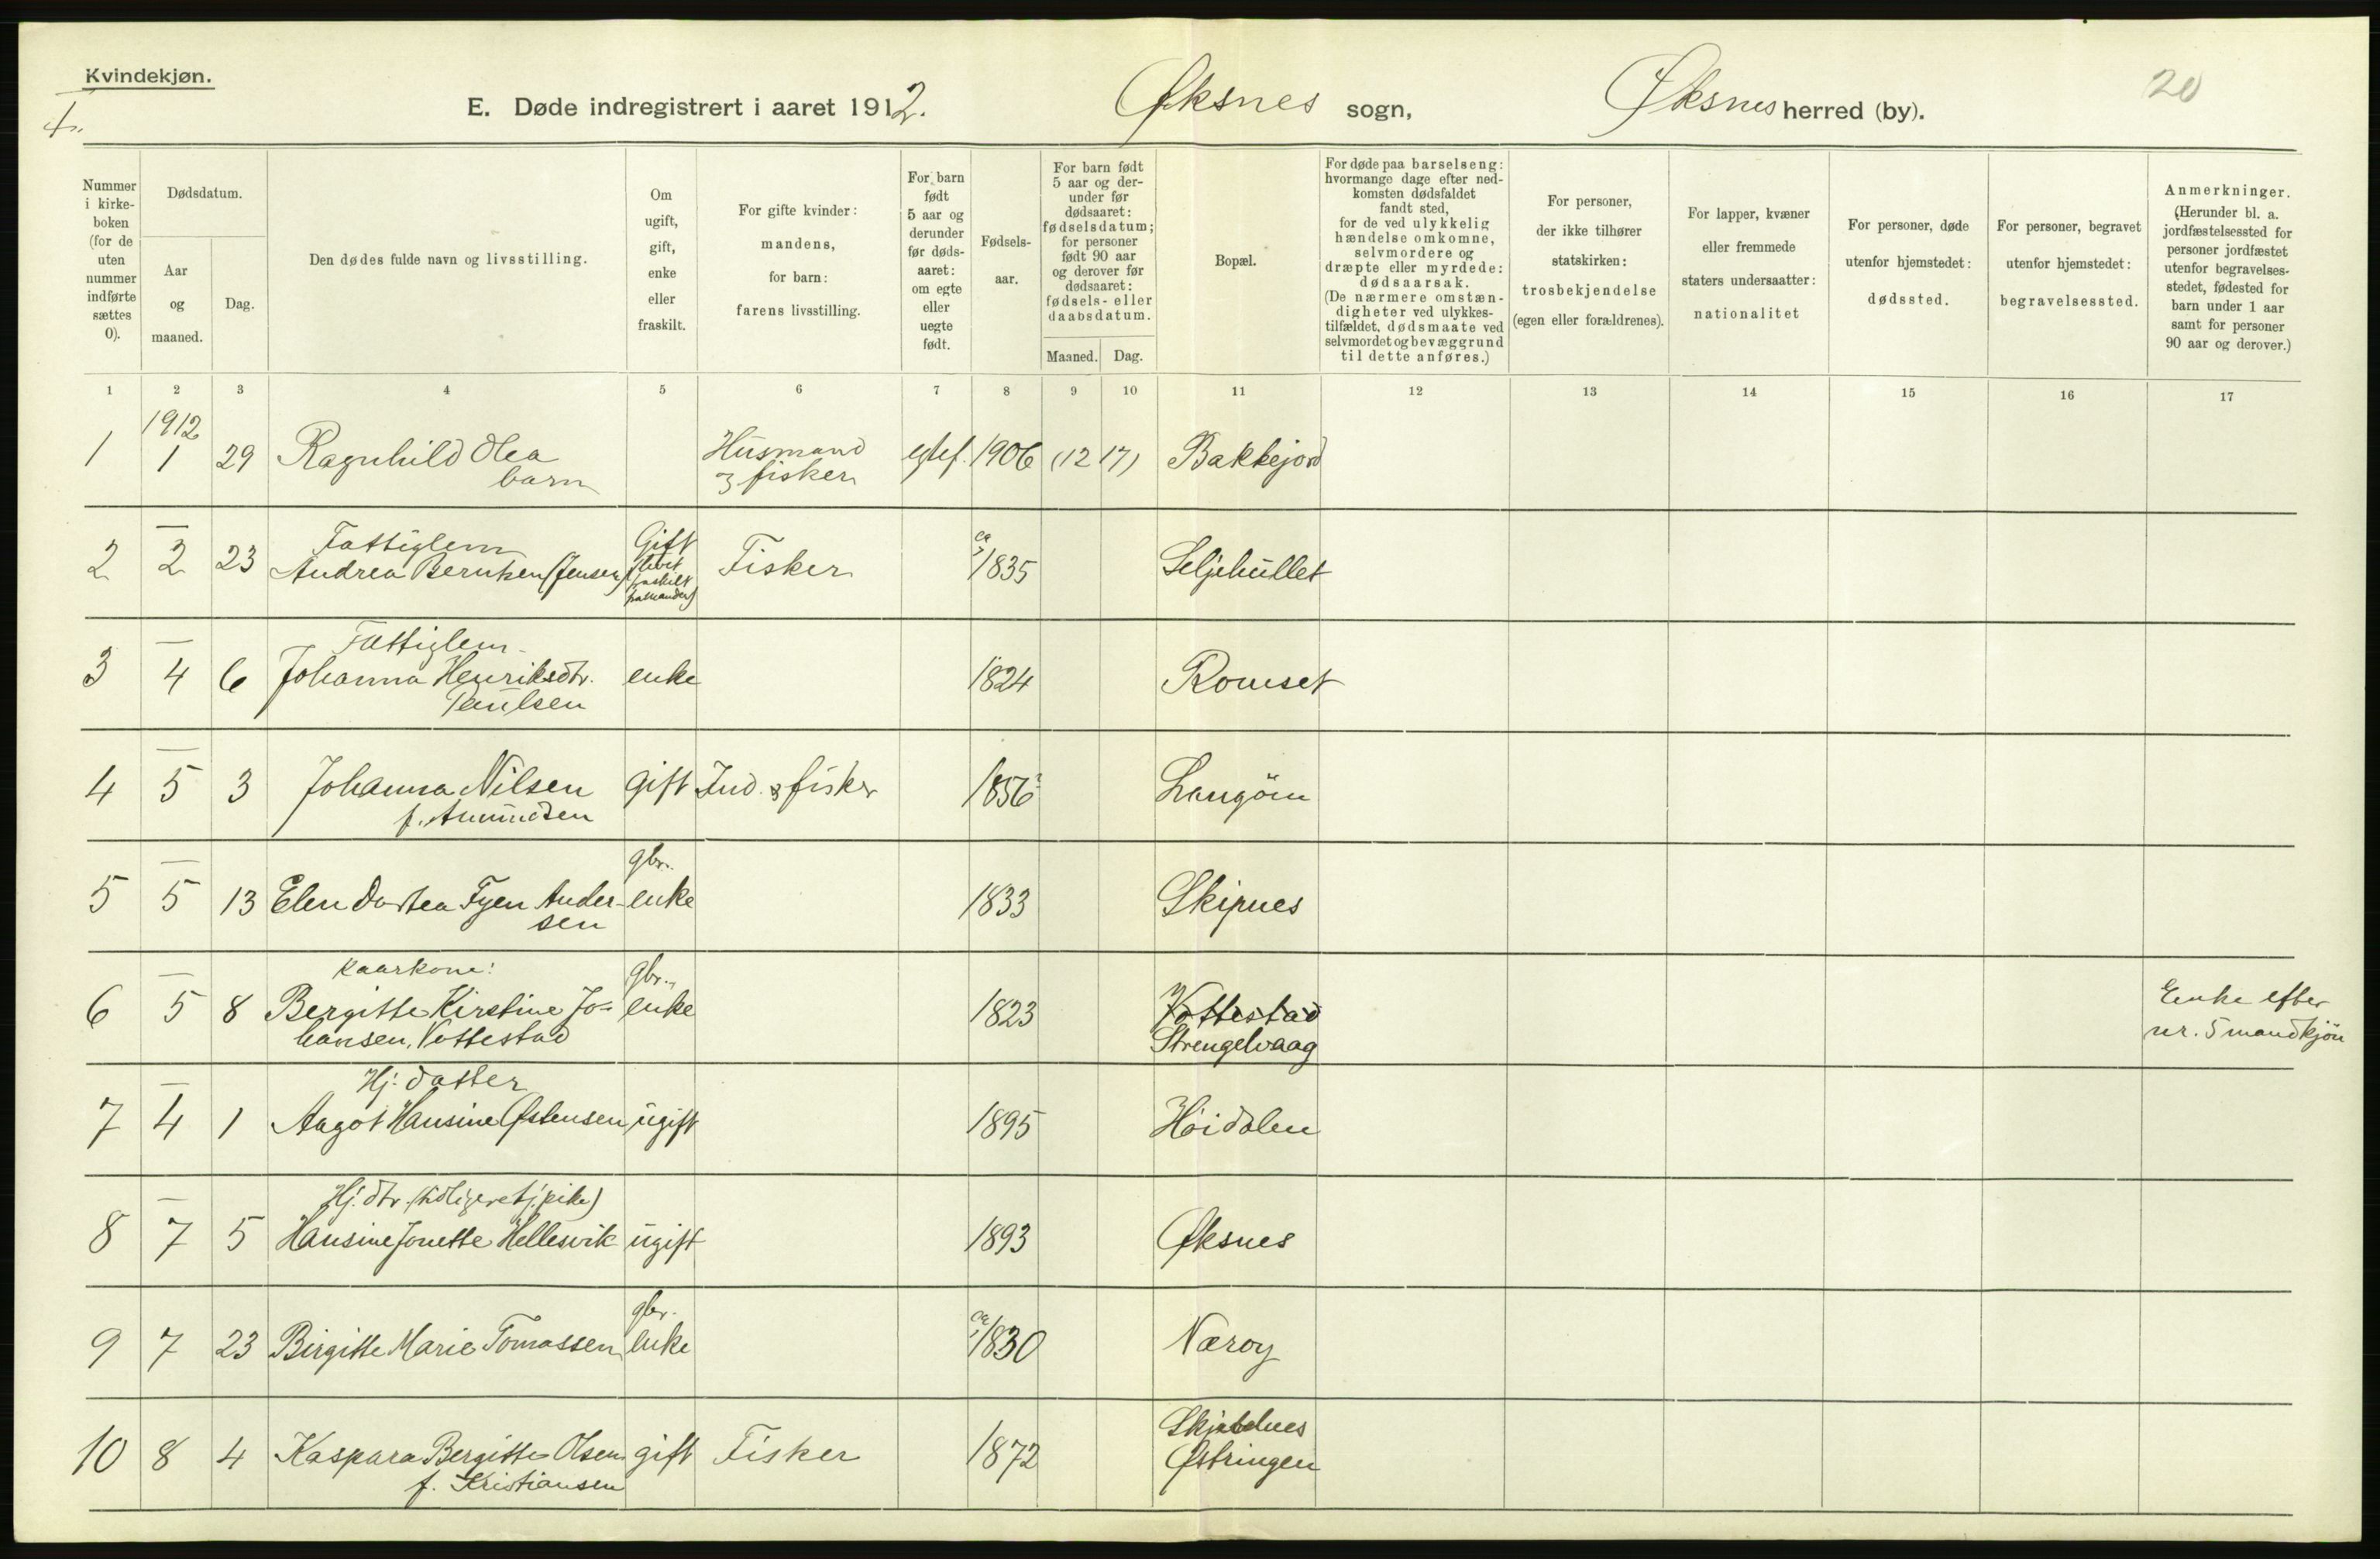 Kvindekjøn.
E. Døde indregistrert i aaret 1912. Øksnes sogn, Øksnes herred (by). 20
Nummer i kirkeboken (for de uten nummer indførte sættes 0).
Dødsdatum.
Aar og maaned.
Dag.
Den dødes fulde navn og livsstilling.
Om ugift, gift, enke eller fraskilt.
For gifte kvinder: mandens, for barn: farens livsstilling.
For barn født 5 aar og derunder før dødsaaret: om egte eller uegte født.
Fødselsaar.
For barn født 5 aar og derunder før dødsaaret: fødselsdatum; for personer født 90 aar og derover før dødsaaret: fødsels- eller daabsdatum.
Maaned. Dag.
Bopæl.
For døde paa barselseng: hvormange dage efter nedkomsten dødsfaldet fandt sted, for de ved ulykkelig hændelse omkomne, selvmordere og dræpte eller myrdede: dødsaarsak. (De nærmere omstændigheter ved ulykkestilfældet, dødsmaate ved selvmordet og bevæggrund til dette anføres.)
For personer, der ikke tilhører statskirken: trosbekjendelse (egen eller forældrenes).
For lapper, kvæner eller fremmede staters undersaatter: nationalitet
For personer, døde utenfor hjemstedet: dødssted.
For personer, begravet utenfor hjemstedet: begravelsessted.
Anmerkninger. (Herunder bl. a. jordfæstelsessted for personer jordfæstet utenfor begravelsesstedet, fødested for barn under 1 aar samt for personer 90 aar og derover.)
1 2 3 4 5 6 7 8 9 10 11 12 13 14 15 16 17
1912
1 1 29 Ragnhild Olea Husmand egtef. 1906 (12 17) Bakkejord
barn & fisker
Fattiglem Gift ca
2 – 2 23 Andrea Berntsen (Jensen) Fisker 1835 Seljehullet
Fattiglem
3 – 4 6 Johanna Henriksdtr. enke 1824 Romset
Paulsen
4 – 5 3 Johanna Nilsen gift Ind. & fisker 1856? Langöen
f. Amundsen
gbr.
5 – 5 13 Elen Dortea Fyen Ander- enke 1833 Skipnes
sen
Kaarkone: gbr.
6 – 5 8 Bergitte Kirstine Jo- enke 1823 Vottestad Enke efter
hansen, Vottestad Strengelvaag nr. 5 mandkjön
Hj. datter
7 – 4 1 Aagot Hansine Østensen ugift 1895 Höidalen
Hj. dtr. (tidligere tj. pike)
8 – 7 5 Hansine Jonette Hellesvik ugift 1893 Øksnes
gbr. ca
9 7 23 Birgitte Marie Tomassen enke 1830 Nærøy
Skjeldnes
10 8 4 Kaspara Bergitte Olsen gift Fisker 1872 Østringen
f. Kristiansen